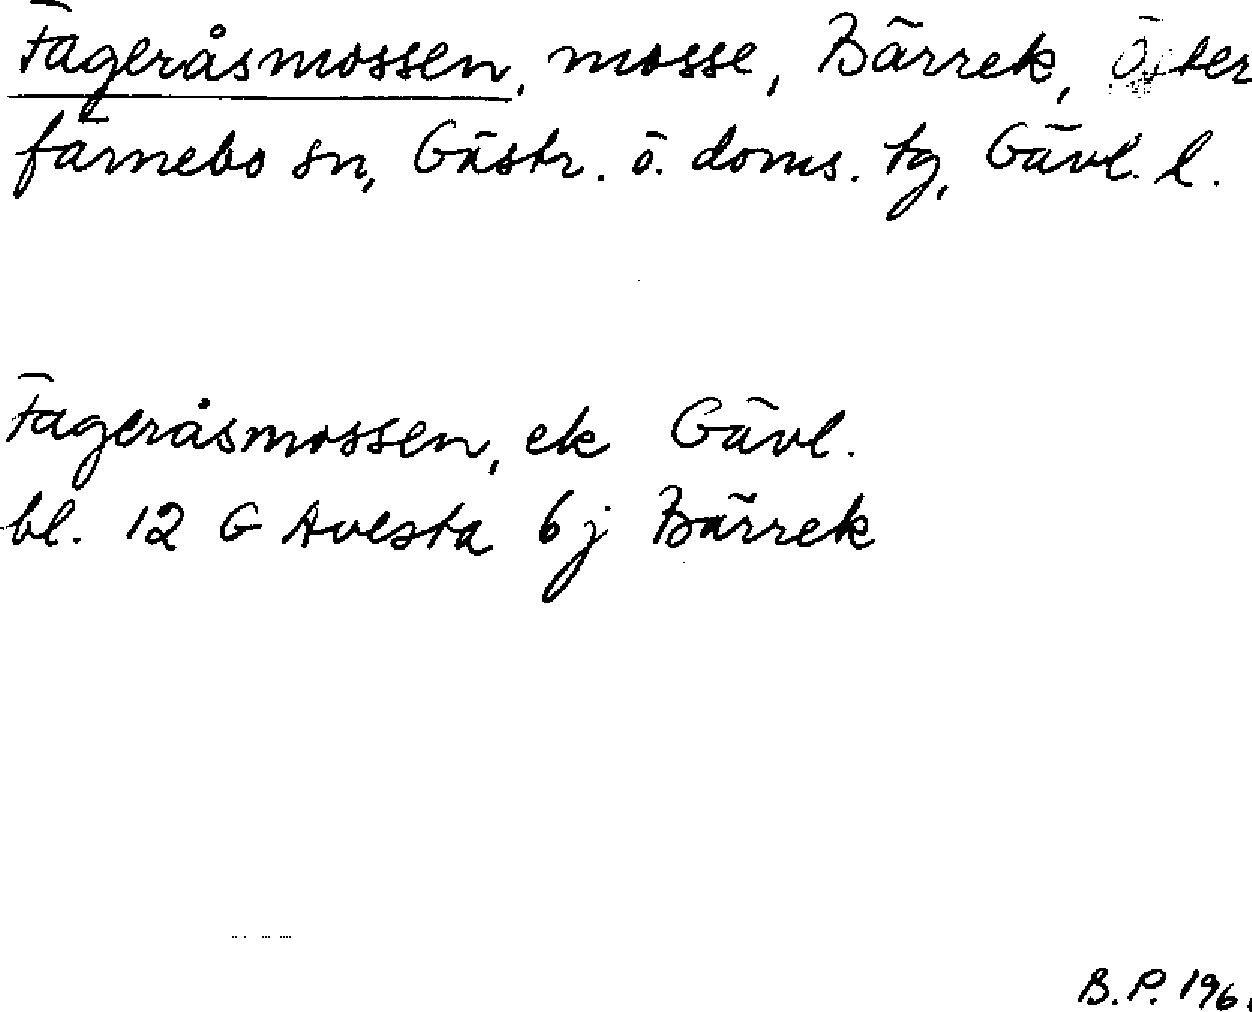 Fageråsmossen, mosse, Bärrek, Öster
färnebo sn, Gästr. ö. doms. tg, Gävl. l.
Fageråsmossen, ek Gävl.
bl. 12 G Avesta 6j Bärrek
B.P. 196